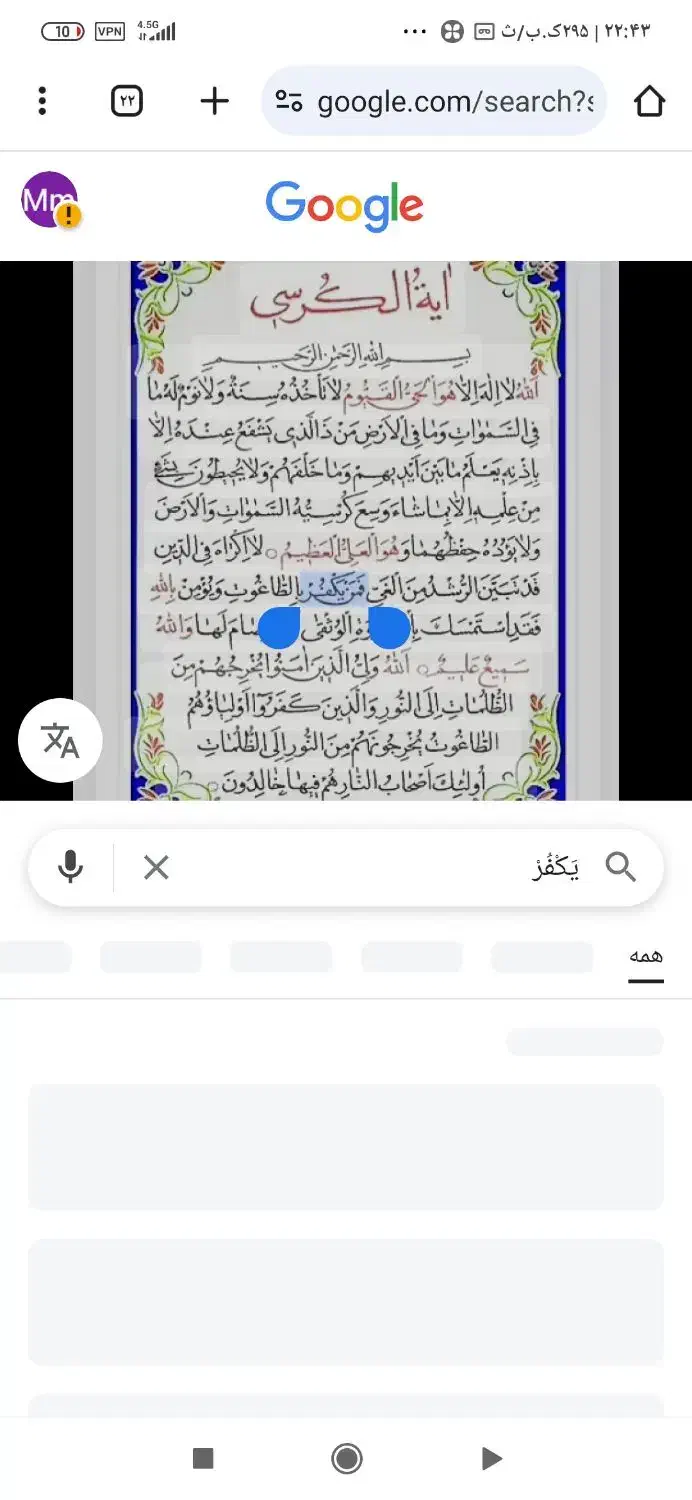 10 VPN 4.5G ... ۲۹۵ک.ب/ث | ۲۲:۴۳
۲۲ google.com/search?s
Mm Google
اٰیة الکرسی
بسم الله الرحمن الرحیم
اَللهُ لا اِلٰهَ اِلّا هُوَ الْحَیُّ الْقَیُّومُ لا تَأْخُذُهُ سِنَةٌ وَلا نَوْمٌ لَهُ ما
فِی السَّمٰوٰاتِ وَما فِی الْاَرْضِ مَنْ ذَا الَّذی یَشْفَعُ عِنْدَهُ اِلّا
بِاِذْنِهِ یَعْلَمُ ما بَیْنَ اَیْدیهِمْ وَما خَلْفَهُمْ وَلا یُحیطُونَ بِشَیْءٍ
مِنْ عِلْمِهِ اِلّا بِما شاءَ وَسِعَ کُرْسِیُّهُ السَّمٰوٰاتِ وَالْاَرْضَ
وَلا یَؤُدُهُ حِفْظُهُما وَهُوَ الْعَلِیُّ الْعَظیمُ لا اِکْراهَ فِی الدّینِ
قَدْ تَبَیَّنَ الرُّشْدُ مِنَ الْغَیِّ فَمَنْ یَکْفُرْ بِالطّاغُوتِ وَیُؤْمِنْ بِاللهِ
فَقَدِ اسْتَمْسَکَ الْوُثْقٰی لَها وَاللهُ
سَمیعٌ عَلیمٌ اَللهُ وَلِیُّ الَّذینَ اٰمَنُوا یُخْرِجُهُمْ مِنَ
الظُّلُماتِ اِلَی النُّورِ وَالَّذینَ کَفَرُوا اَوْلِیاؤُهُمُ
الطّاغُوتُ یُخْرِجُونَهُمْ مِنَ النُّورِ اِلَی الظُّلُماتِ
اُولٰئِکَ اَصْحابُ النّارِ هُمْ فیها خالِدُونَ
یَکْفُرْ
همه